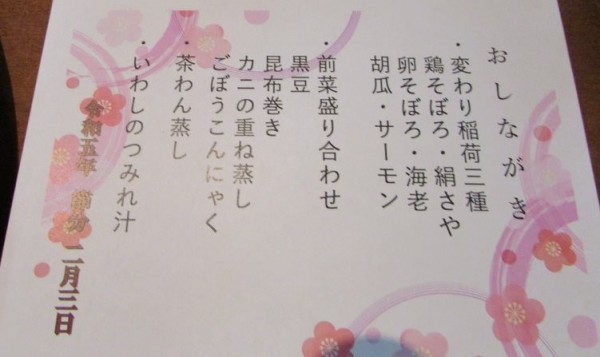 おしながき
・変わり稲荷三種
鶏そぼろ・絹さや
卵そぼろ・海老
胡瓜・サーモン
・前菜盛り合わせ
黒豆
昆布巻き
カニの重ね蒸し
ごぼうこんにゃく
・茶わん蒸し
・いわしのつみれ汁
令和五年 節分 二月三日